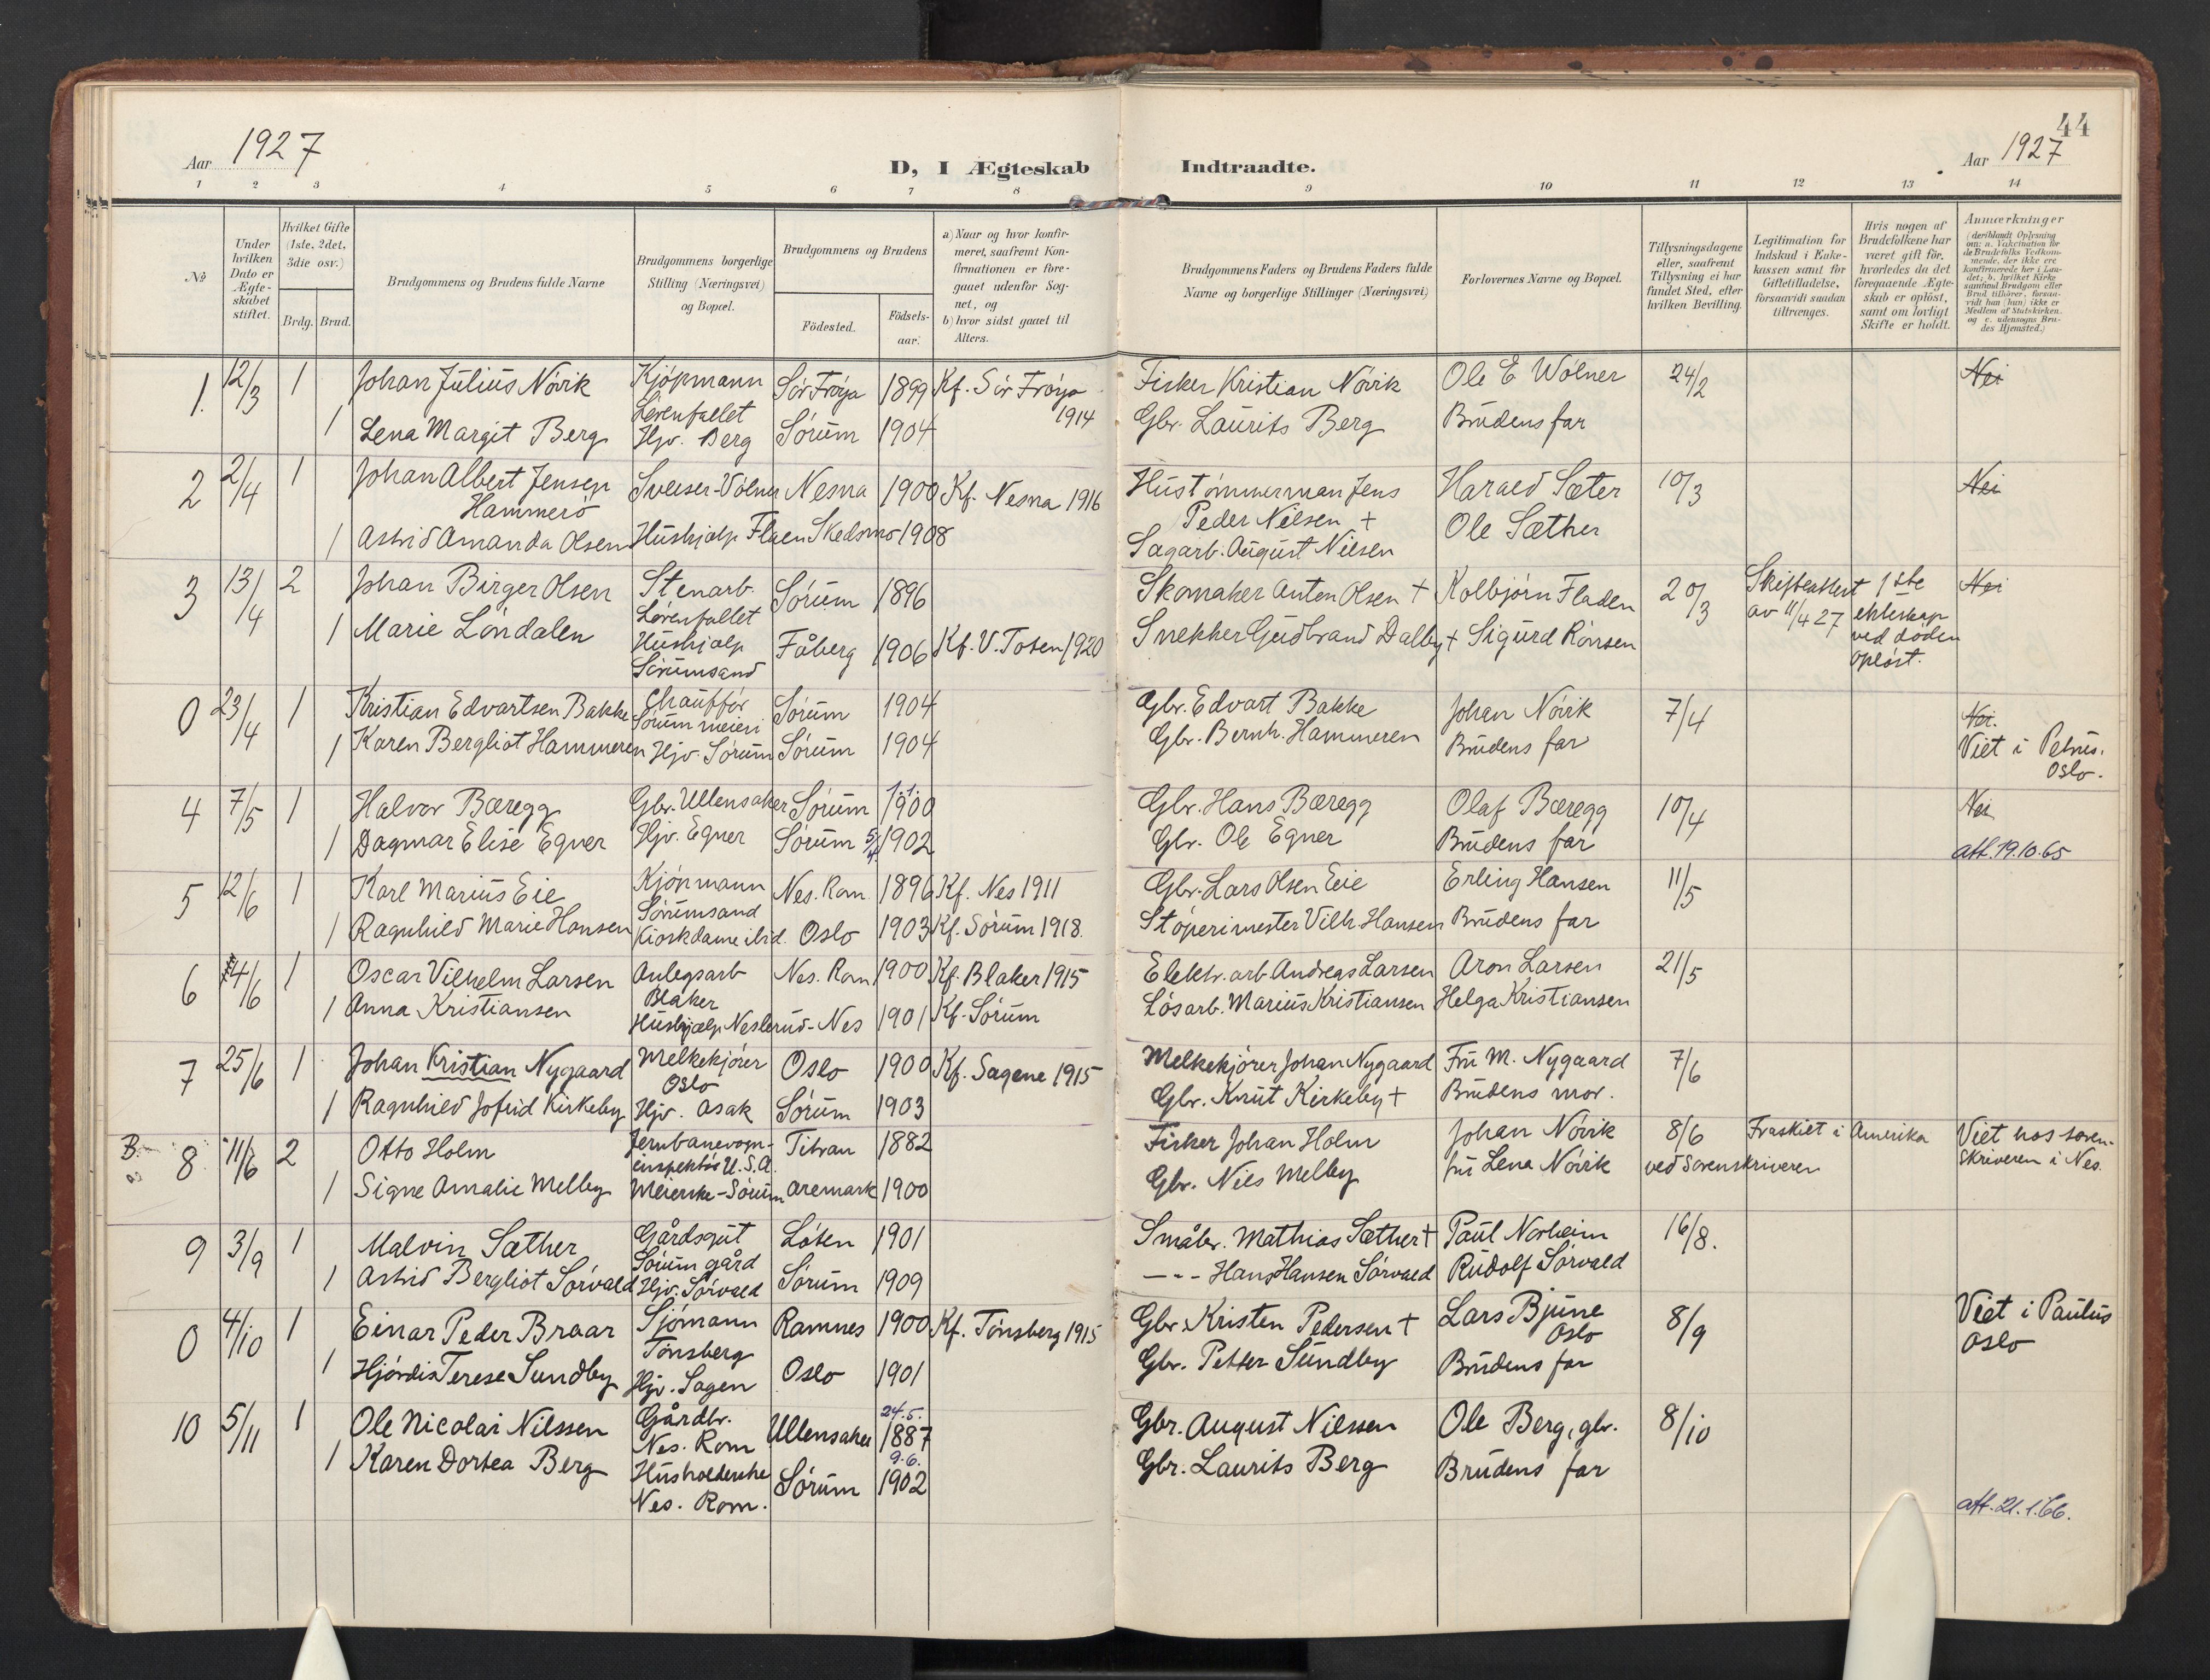 44
Aar 1927
D, I Ægteskab Indtraadte.
Aar 1927
1 2 3 4 5 6 7 8 9 10 11 12 13 14
№
Under hvilken Dato er Ægteskabet stiftet.
Hvilket Gifte (1ste, 2det, 3die osv.)
Brdg. Brud.
Brudgommens og Brudens fulde Navne
Brudgommens borgerlige Stilling (Næringsvei) og Bopæl.
Brudgommens og Brudens
Fødested.
Fødselsaar.
a) Naar og hvor konfirmeret, saafremt Konfirmationen er foregaaet udenfor Sognet, og
b) hvor sidst gaaet til Alters.
Brudgommens Faders og Brudens Faders fulde Navne og borgerlige Stillinger (Næringsvei)
Forlovernes Navne og Bopæl.
Tillysningsdagene eller, saafremt Tillysning ei har fundet Sted, efter hvilken Bevilling.
Legitimation for Indskud i Enkekassen samt for Giftetilladelse, forsaavidt saadan tiltrænges.
Hvis nogen af Brudefolkene har været gift før, hvorledes da det foregaaende Ægteskab er opløst, samt om lovligt Skifte er holdt.
Anmærkninger (deriblandt Oplysning om: a. Vakcination for de Brudefolks Vedkommende, der ikke ere konfirmerede her i Landet; b. hvilket Kirkesamfund Brudgom eller Brud tilhører, forsaavidt han (hun) ikke er Medlem af Statskirken. og c. udensogns Brudes Hjemsted.)
1. 12/3 1 Johan Julius Nóvik Kjópmann Sór Fróya 1899 Kf. Sór Fróya 1914 Fisker Kristian Nóvik Ole E Wólner 24/2 Nei
Lórenfallet
1 Lena Margit Berg Hjv. Berg Sórum 1904 Gbr. Laurits Berg Brudens far
2 2/4 1 Johan Albert Jensen Sveiser-Vólner Nesna 1900 Kf. Nesna 1916 Hustómmerman Jens Harald Sæter 10/3 Nei
Hammeró Peder Nilsen + Ole Sæther
1 Astrid Amanda Olsen Hushjælp Flaen Skedsmo 1908 Sagarb. August Nilsen
3 13/4 2 Johan Birger Olsen Stenarb. Sórum 1896 Skomaker Anton Olsen + Kolbjórn Fladen 20/3 Skifteattest av 11/4 27 1ste ekteskap ved dóden oplóst. Nei
Lórenfallet
1 Marie Lóndalen Hushjælp Fåberg 1906 Kf. V. Toten 1920 Snekker Gudbrand Dalby + Sigurd Rónsen
Sórumsand
0 23/4 1 Kristian Edvartsen Bakke Chauffór Sórum 1904 Gbr. Edvart Bakke Johan Nóvik 7/4 Nei.
Sórum meieri
1 Karen Bergliot Hammeren Hjv. Sórum Sórum 1904 Gbr. Bernh. Hammeren Brudens far Viet i Petrus. Oslo.
4 7/5 1 Halvor Bæregg Gbr. Ullensaker Sórum 1.1. 1900 Gbr. Hans Bæregg Olaf Bæregg 10/4 Nei
1 Dagmar Elise Egner Hjv. Egner Sórum 5/4 1902 Gbr. Ole Egner Brudens far att. 19.10.65
5 12/6 1 Karl Marius Eie Kjópmann Nes. Rom. 1896 Kf. Nes 1911 Gbr. Lars Olsen Eie Erling Hansen 11/5
Sórumsand
1 Ragnhild Marie Hansen Kioskdame ibid. Oslo 1903 Kf. Sórum 1918. Stóperimester Vilh. Hansen Brudens far
6 4/6 1 Oscar Vilhelm Larsen Anlegsarb Nes. Rom 1900 Kf. Blaker 1915 Elektr. arb. Andreas Larsen Aron Larsen 21/5
Blaker
1 Anna Kristiansen Hushjælp Neslerud- Nes 1901 Kf. Sórum Lósarb. Marius Kristiansen Helga Kristiansen
7 25/6 1 Johan Kristian Nygaard Melkekjórer Oslo 1900 Kf. Sagene 1915 Melkekjórer Johan Nygaard Fru M. Nygaard 7/6
Oslo
1 Ragnhild Jofrid Kirkeby Hjv. Asak Sórum 1903 Gbr. Knut Kirkeby + Brudens mor.
B. 8 11/6 2 Otto Holm Jernbanevogn- Titran 1882 Fisker Johan Holm Johan Nóvik 8/6 Fraskilt i Amerika Viet hos soren-
inspektór U.S.A. fru Lena Nóvik ved Sorenskriveren skriveren i Nes.
1 Signe Amalie Melby Meierske-Sórum Aremark 1900 Gbr. Nils Melby
9 3/9 1 Malvin Sæther Gårdsgut Lóten 1901 Småbr. Mathias Sæther + Paul Norheim 16/8.
Sórum gård
1 Astrid Bergliot Sórvald Hjv. Sórvald Sórum 1909 -"- Hans Hansen Sórvald Rudolf Sórvald
0 4/10 1 Einar Peder Braar Sjómann Ramnes 1900 Kf. Tónsberg 1915 Gbr. Kristen Pedersen + Lars Bjune Oslo 8/9 Viet i Paulus Oslo
Tónsberg
1 Hjórdis Terese Sundby Hjv. Sagen Oslo 1901 Gbr. Petter Sundby Brudens far
10 5/11 1 Ole Nicolai Nilssen Gårdbr. Ullensaker 24.5. 1887 Gbr. August Nilssen Ole Berg, gbr. 8/10
Nes. Rom
1 Karen Dortea Berg Husholderske Sórum 9.6. 1902 Gbr. Laurits Berg Brudens far
Nes. Rom.
att. 21.1.66.